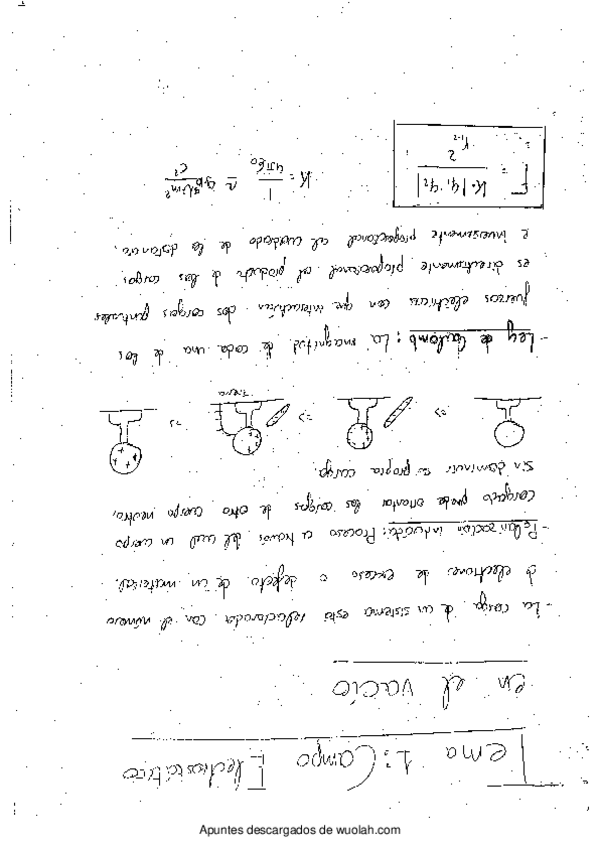 Tema 1: Campo Electrostático
en el vacío
- La carga de un sistema está relacionada con el número
de electrones de exceso o defecto de un material.
- Polarización inducida: Proceso a través del cual un cuerpo
cargado puede orientar las cargas de otro cuerpo neutro,
sin disminuir su propia carga.
=> => =>
Tierra
- Ley de Coulomb: La magnitud de cada una de las
fuerzas eléctricas con que interactúan dos cargas puntuales
es directamente proporcional al producto de las cargas
e inversamente proporcional al cuadrado de la distancia.
F = K·|q1·q2| / r1-2^2
K = 1 / 4πε0
Apuntes descargados de wuolah.com